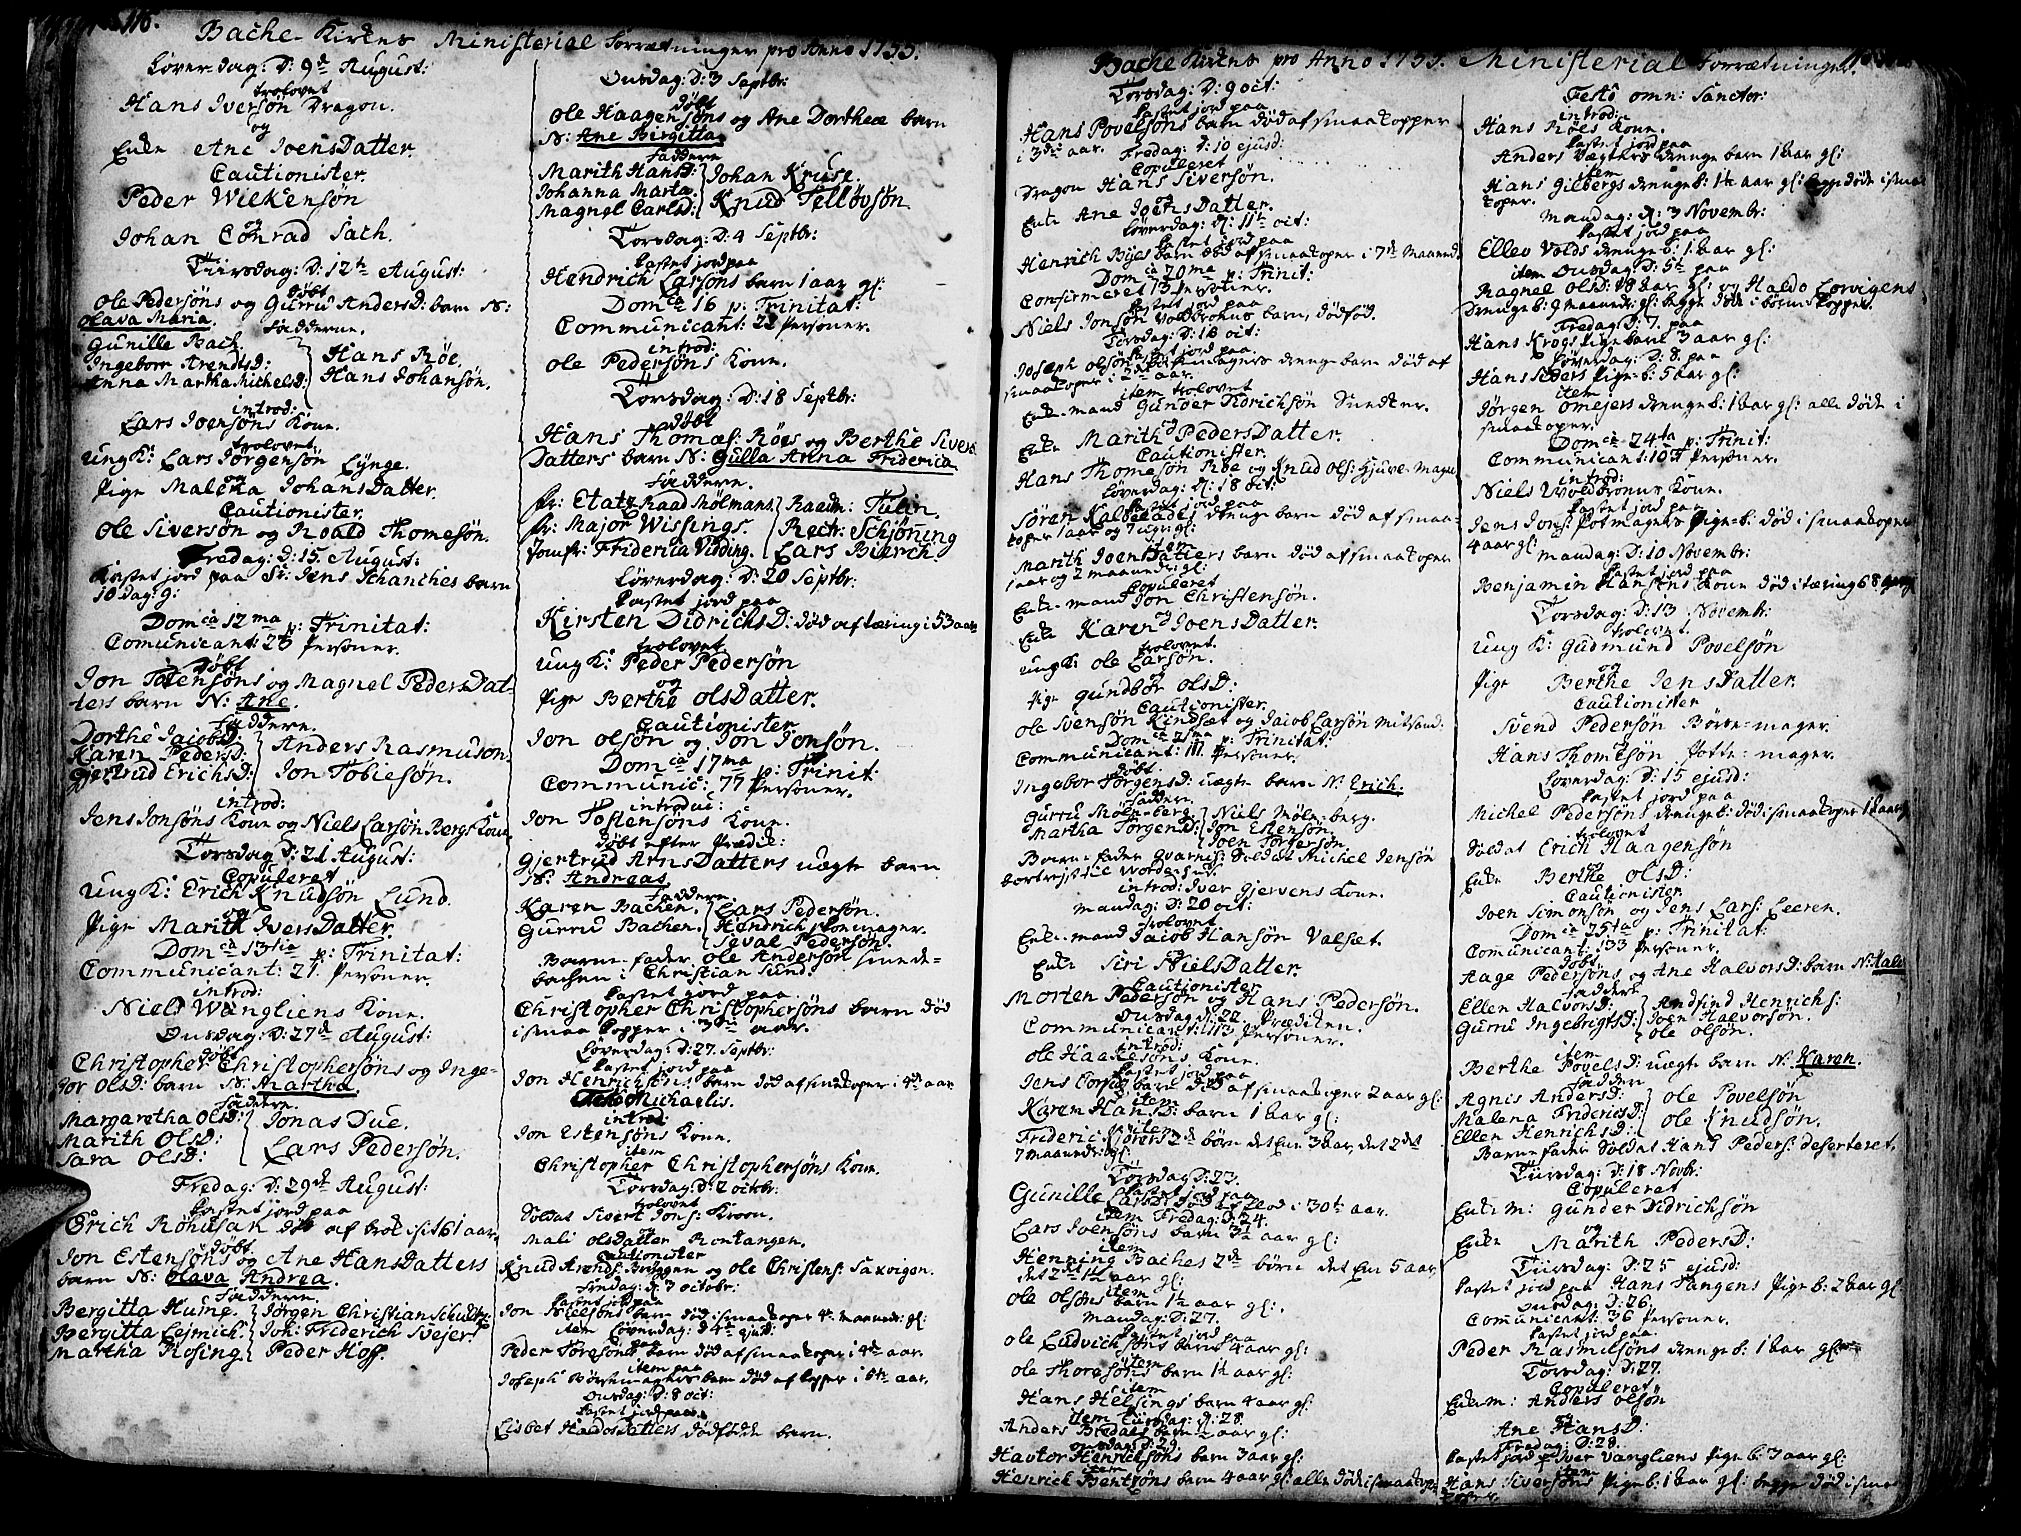 116.
Bache Kirkes Ministerial Forretninger pro Anno 1755.
Løver-dag: D: 9de August:
trolovet
Hans Iversön Dragon.
og
Enke Ane JoensDatter.
Cautionister.
Peder Wilkensön
og
Johan Conrad Sach.
Tiirsdag: D: 12te August:
døbt
Ole Pedersöns og Gurru Andersd: barn N:
Olava Maria.
Faddere.
Gunille Bach.
Ingebor Arendsd: Hans Röe.
Anna Martha Michelsd: Hans Johansön.
introd:
Lars Joensöns Kone.
trolovet
Ung K: Lars Jörgensön Lynge.
og
Pige Malena JohansDatter.
Cautionister.
Ole Siversön og Roald Thomesön.
Fredag: D: 15 August:
Kastet jord paa Sr: Jens Schanches barn
10 dag: g:
Domca 12ma p: Trinitat:
Comunicant: 23 Personer.
Døbt
Jon Totensöns og Magnel PedersDat-
ters barn N: Ane.
Faddere.
Dorthe Jacobsd:
Karen Pedersd: Anders Rasmuson.
Gjertrud Erichsd: Jon Tobiesön.
introd:
Jens Jonsöns Kone og Niels Larsön Bergs Kone
Torsdag D: 21 August:
Copuleret
Ung K: Erich Knudsön Lund.
og
Pige Marith IversDatter.
Domca 13tia p: Trinitat:
Communicant: 21 Personer.
introd:
Niels Wangliens Kone.
Onsdag: D: 27de August:
døbt
Christopher Christophersöns og Inge-
bor Olsd: barn N: Martha.
Faddere.
Margaretha Olsd: Jonas Due.
Marith Olsd:
Sara Olsd: Lars Pedersön.
Fredag: D: 29de August:
Kastet jord paa
Erich Röhusak død af brok i sit 61 aar,
døbt
Jon Estensöns og Ane HansDatters
barn N: Olava Andrea.
Faddere.
Bergitta Hume. Jörgen Christian Schultz
Bergitta Lejmich. Joh: Friderich Svejer.
Martha Rosing. Peder Hoff.
Onsdag: D: 3 Septbr:
døbt
Ole Haagensöns og Ane Dortheæ barn
N: Ane Birgitta.
Faddere
Marith Hansd: Johan Kruse.
Johanna Marta.
Magnel Carlsd: Knud Tellövsön
Torsdag: D: 4 Septbr:
Kastet jord paa
Hendrich Larsöns barn 1 aar gl:
Domca 16 p: Trinitat:
Communicant: 22 Personer.
introd:
Ole Pedersöns Kone.
Torsdag: D: 18 Septbr:
døbt
Hans Thomæs: Röes og Berthe Sivers
Datters barn N: Gulla Anna Friderica.
Faddere.
Fr: Etatz Raad Mölmans. Raadm: Tulin.
Fr: Major Wissings. Rectr: Schjönning
Jomfr: Friderica Vibding. Lars Bierrich.
Løverdag: D: 20 Septbr:
Kastet jord paa
Kirsten Didrichsd: død af tæring i 53 aar
trolovet
Ung K: Peder Pedersön
og
Pige Berthe OlsDatter.
Cautionister
Jon Olsön og Jon Jonsön.
Domca 17ma p: Trinit:
Communic: 77 Personer.
introdui:
Jon Tostensöns Kone.
døbt efter Prædik:
Gjertrud ArnsDatters uægte barn
N: Andreas.
Faddere
Karen Bachen. Lars Pedersön.
Gurru Bachen. Hendrich Skomager.
Seval Pedersön.
Barne-fader Ole Andersön smede-
bachen i Christian Sund.
Kastet jord paa
Christopher Christophersöns barn død
i smaa Kopper i 3die aar.
Løverdag: D: 27. Septbr:
Kastet jord paa
Jon Henrichsöns barn død af smaakoper i 4de aar
Festo Michaelis.
introd:
Jon Estensöns Kone.
item
Christopher Christophersöns Kone.
Torsdag: D: 2 octbr:
trolovet
Soldat Sivert Jons: Kroon.
og
Mali OlsDatter Rontangen.
Cautionister
Knud Arends: Bryggen og Ole Christens: Saxvigen.
Fredag: D: 3 octobr:
Kastet jord paa
Jon Nielsöns barn død i smaakoper 4 maaned: gl:
item Løverdag: D: 4de ejusd:
paa
Peder Toresöns barn død af smaakoper i 4de aar.
item paa
Joseph Børstmagers barn død af kopper i 5te aar.
Onsdag: D: 8 oct:
Kastet jord paa
Lisbet HaldosDatters dødfødde barn.
Bache Kirkes pro Anno 1755. Ministerial Forretninger.
Torsdag: D: 9 oct:
Kastet jord paa
Hans Povelsöns barn død af smaakopper
i 3die aar. Fredag: D: 10 ejusd:
Copuleret
Dragon Hans Siversön.
og
Enke Ane JoensDatter.
Løverdag: D: 11te oct:
Kastet jord paa
Henrich Byes barn død af smaakoper i 7de Maaned.
Domca 20ma p: Trinit:
Confirmeret 13 Personer.
Kastet jord paa
Niels Jonsön Voldbrohus barn, dødfød.
Torsdag: D: 16 oct:
Kastet jord paa
Joseph Olsön drenge barn død af
smaakoper i 2det aar.
item trolovet
Enke-mand Gunder Didrichsön Sundker.
og
Enke Marith PedersDatter.
Cautionister
Hans Thomesön Röe og Knud Ols: Hjuve-Mager
Løverdag: D: 18 oct:
Kastet jord paa
Sören Kalvelades drenge barn død af smaa-
koper 1 aar og 7 uger gl:
item
Marith JoensDatters barn død af smaakoper
1 aar og 2 maaneder gl:
Copuleret
Enke-mand Jon Christensön.
og
Enke Karen JoensDatter.
trolovet
Ung K: Ole Larsön.
og
Pige Gundbör Olsd:
Cautionister.
Ole Svensön Kindsæt og Jacob Larsön Mitsand:
Domca 21ma p: Trinitat:
Communicant: 111 Personer.
døbt
Ingebor Jörgensd: uægte barn N: Erich.
Faddere
Gurru Mölnberg. Niels Mölnberg.
Martha Jörgensd: Jon Estensön.
Joen Törgersön.
Barne-fader Gvarnis: Soldat Michel Jensön
introd: Iver Gjervens Kone.
Mandag: D: 20 oct:
trolovet
Enke-mand Jacob Hansön Valset.
og
Enke Siri NielsDatter.
Cautionister
Morten Pedersön og Hans Pedersön.
Onsdag D: 22 Prædiken.
Communicant: 113 Personer.
introd:
Ole Haagesöns Kone.
Kastet jord paa
Jens Lorsig barn død af smaakoper 2 aar gl:
item
Karen Hansd: barn 1 1/2 aar gl:
item
Frideric Kjörers 2de börn det Ene 3 aar, det 2det
7 maaneder gl:
Torsdag: D: 23.
Kastet jord paa
item Fredag: D: 24.
Lars Joensöns barn 3 1/2 aar gl:
item
Henning Baches 2de börn det Ene 5 aar,
det 2det 1 1/2 aar gl:
item
Ole Olsöns barn 1 1/2 aar gl:
Mandag: D: 27.
Kastet jord paa
Ole Ludvichsöns barn 4 aar gl:
item
Ole Thoresöns barn 1 1/2 aar gl:
item
Hans Helsings barn 4 aar gl:
item Tiirsdag: D: 28.
Anders Bredals barn 1/2 aar gl:
Onsdag D: 29.
Havtor Henrichsöns barn 3 aar gl:
item
Henrich Bentsöns barn 4 aar gl: alle døde i smaakop:
Festô omn: Sanctor:
introd:
Hans Röes Kone.
Kastet jord paa
Anders Vægters drenge barn 1 1/2 aar gl:
item
Hans Gilbergs drenge b: 1 1/2 aar gl: begge døde i smaa
koper.
Mandag: D: 3 Novembr:
Kastet jord paa
Ellev Volds drenge b: 1 1/2 aar gl:
item Onsdag: D: 5te paa
Magnel Olsd: 18 aar gl: og Haldo Lorvigens
drenge b: 9 maaneder gl: begge døde i börne Kopper.
Fredag: D: 7. paa
Hans Krogs pige barn 3 aar gl:
Løverdag: D: 8. paa
Hans Siders Pige b: 5 aar gl:
item
Jörgen Omejers drenge b: 1 1/2 aar gl: alle døde i
smaakoper.
Domca 24ta p: Trinit:
Communicant: 107 Personer.
introd:
Niels Voldbronus Kone.
Kastet jord paa
Jens Jons: Potmagers Pige-b: død i smaakoper
4 aar gl: Mandag: D: 10 Novembr:
Kastet jord paa
Benjamin Hansens Kone død i tæring 68 aar gl
Torsdag: D: 13 Novembr:
trolovet
Ung K: Gudmund Povelsön
og
Pige Berthe JensDatter.
Cautionister
Svend Pedersön Börte-mager.
Hans Thomesön Potte-mager.
Løverdag: D: 15 ejusd:
Kastet jord paa
Michel Pedersöns drenge b: død i smaakoper 1 1/2 aar gl
trolovet
Soldat Erich Haagensön
og
Enke Berthe Olsd:
Cautionister
Joen Simonsön og Jens Lars: Leeren.
Domca 25ta p: Trinitat:
Comunicant: 133 Personer.
døbt
Aage Pedersöns og Ane Halvorsd: barn N: Halv
Faddere
Ellen Halvorsd: Andfind Henrichs:
Gurru Ingebrigtsd: Joen Halvorsön.
Ole Olsön.
item
Berthe Povelsd: uægte barn N: Karen.
Faddere
Agnis Andersd: Ole Povelsön
Malena Fridericsd: Ole Knudsön.
Ellen Henrichsd:
Barne fader Soldat Hans Peders: deserteret.
Tiirsdag: D: 18 Novbr:
Copuleret
Enke m: Gunder Didrichsön
og
Enke Marith Pedersd:
Tiirsdag: D: 25 ejusd:
Kastet jord paa Hans Tangens Pige b: 2 1/2 aar gl:
Onsdag: D: 26.
Comunicant: 36 Personer.
Kastet jord paa
Peder Rasmusöns drenge b: 1 1/2 aar gl:
Torsdag: D: 27.
Copuleret
Enke m: Anders Olsön
og
Ane Hansd:
Fredag: D: 28.
Kastet jord p Iver Vangliens Pige b: 7 aar gl:
item
Hans Siversöns Pige b: 1 1/2 aar gl: begge død i smaa
koper.